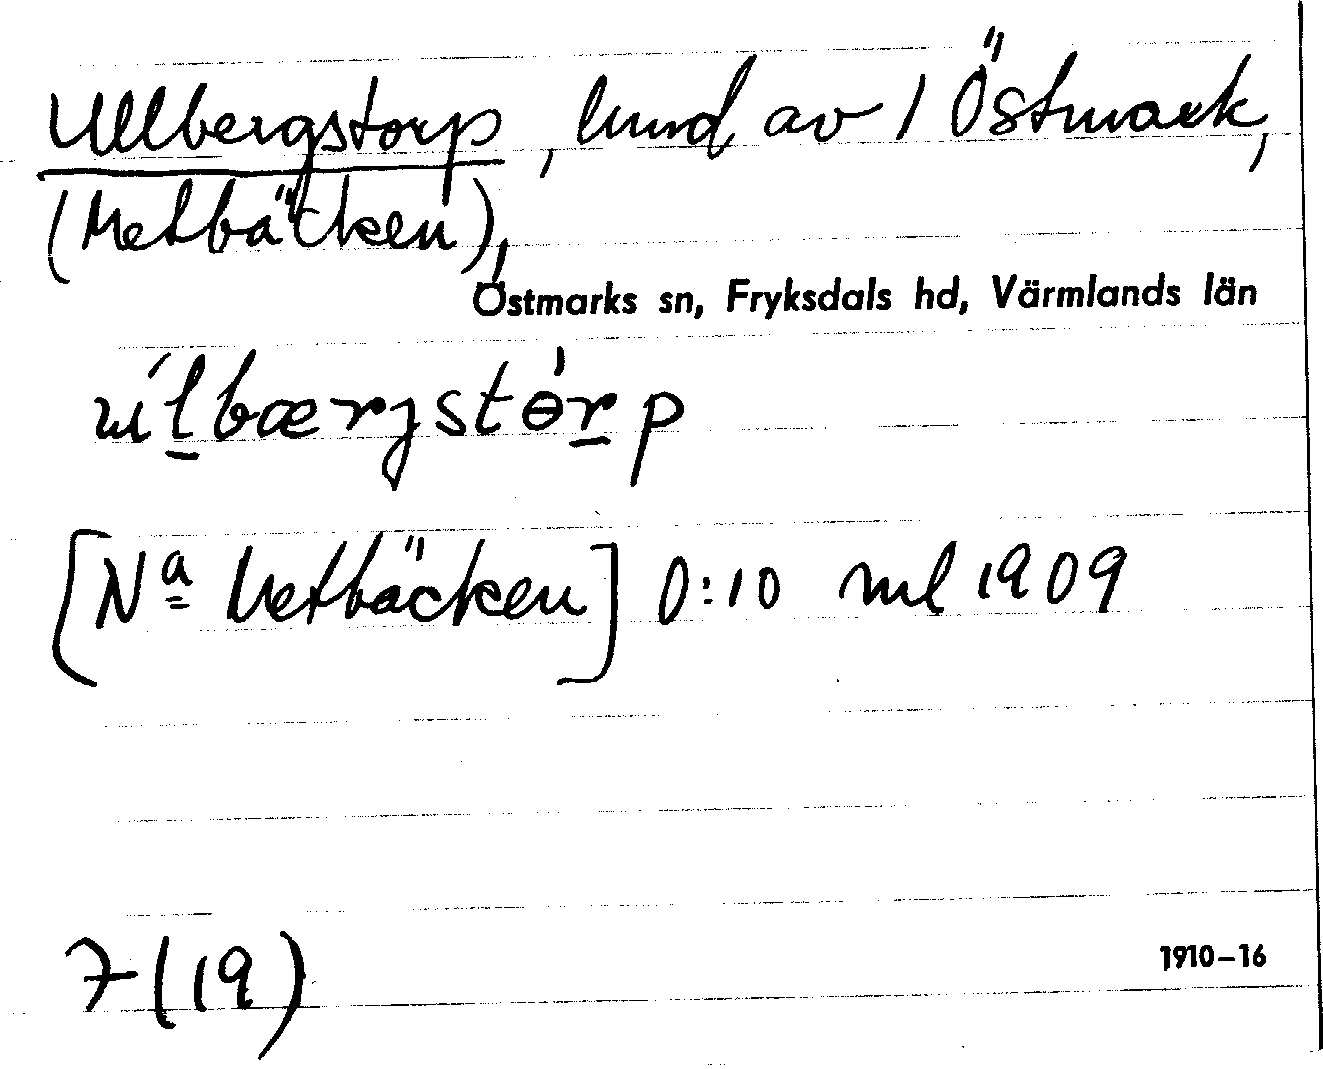 Ullbergstorp, lund av 1 Östmark,
(Metbäcken),
Östmarks sn, Fryksdals hd, Värmlands län
[Nª Metbäcken] 0:10 ml 1909
7 (19)
1910-16